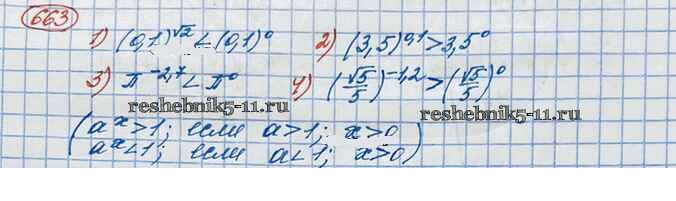 663
1) (0,1)^√2 < (0,1)^0 2) (3,5)^0,1 > 3,5^0
3) π^-2,7 < π^0 4) (√5/5)^-1,2 > (√5/5)^0
reshebnik5-11.ru reshebnik5-11.ru
(a^x > 1; если a > 1; x > 0
a^x < 1; если a < 1; x > 0)